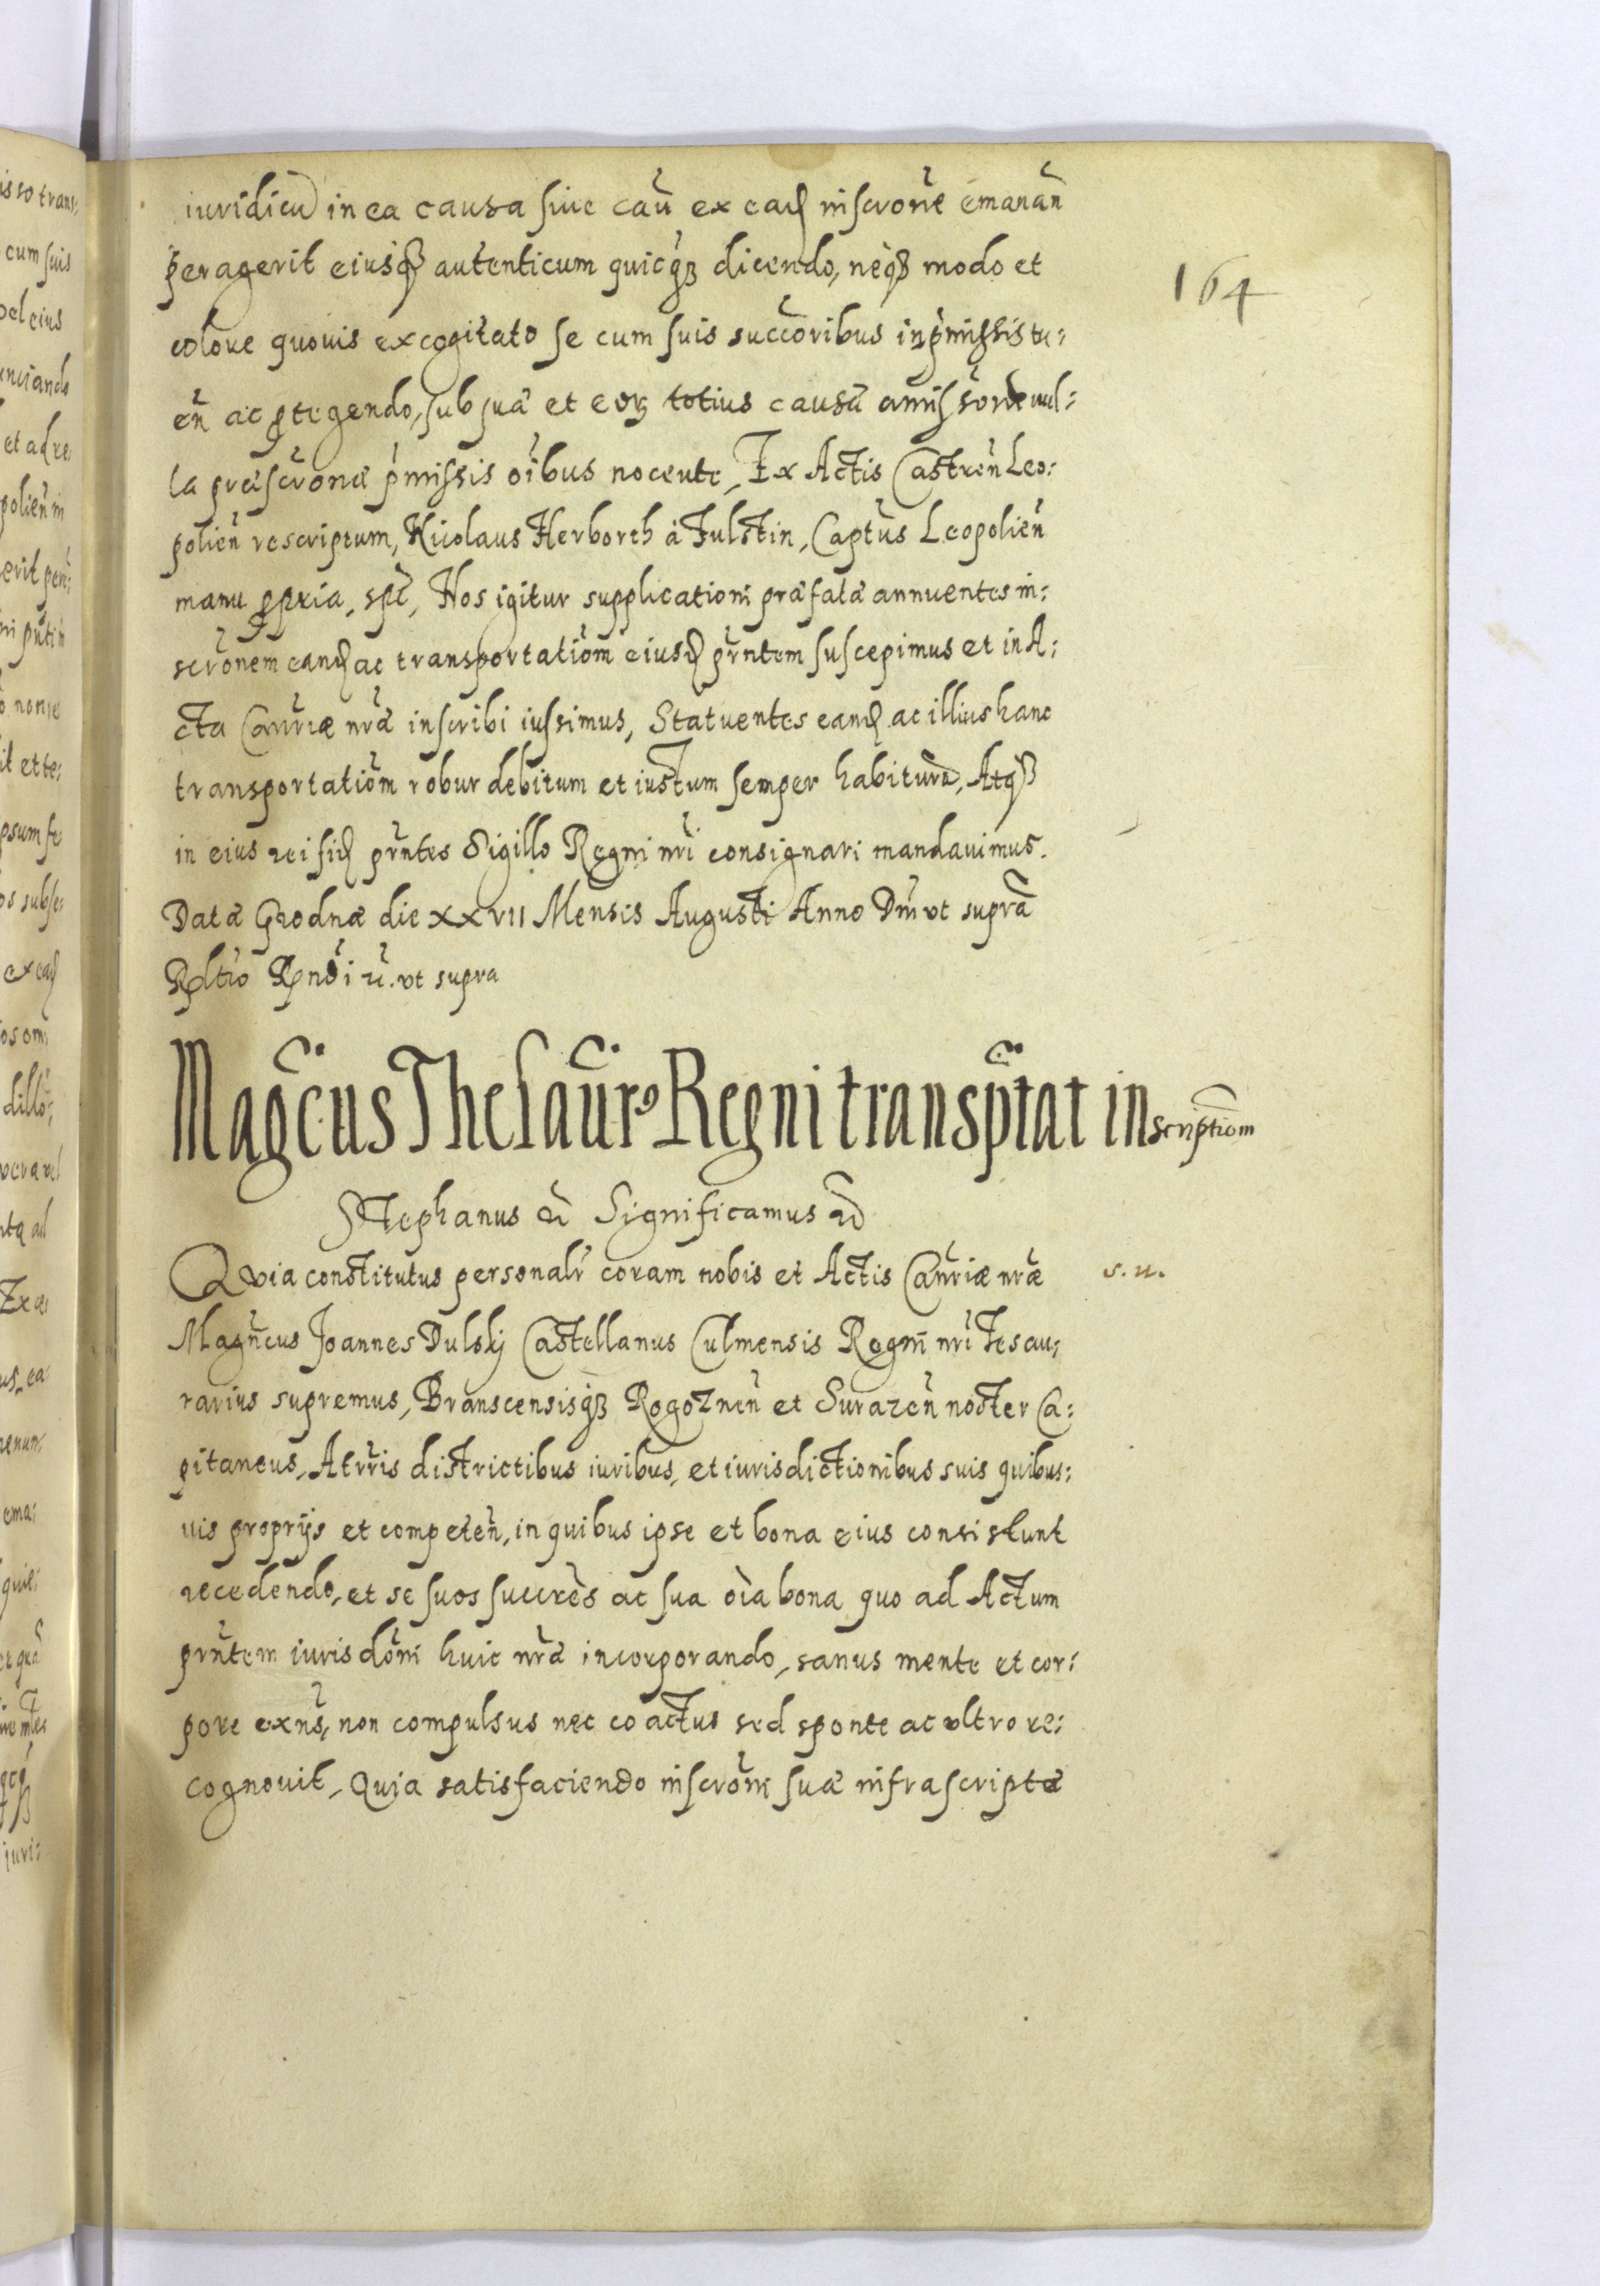 iuridicū in ea causa siue caū ex eadꝫ inscrōne emanan̄
peragerit eiusqꝫ autenticum quicqꝫ dicendo, neqꝫ modo et
colore quouis excogitato se cum suis succōribus in p̄missis tu:
en̄ ac ꝓtegendo, sub sua et eoꝝ totius causæ amissōne nul:
la præscr̄one p̄missis oībus nocente, Ex Actis Castren̄ Leo:
polien̄ rescriptum, Nicolaus Herborth à Fulstin, Captūs Leopolien̄
manu ꝓpria, spt̄, Nos igitur supplicationi præfatæ annuentes in:
scrōnem eandꝫ ac transportatiōm eiusdꝫ prn̄tem suscepimus et in A:
cta Can̄riæ nr̄æ inscribi iussimus, Statuentes eandꝫ ac illius hanc
transportatiōm robur debitum et iustum semper habituræ, Atqꝫ
in eius rei fidꝫ prn̄tes Sigillo Regni nr̄i consignari mandauimus.
Datæ Grodnæ die xxvii Mensis Augusti Anno Dn̄i vt supra
Rltio Rndi ꝛc̄. vt supra
164
Magc̄us Thesaūrꝰ Regni transpr̄tat inscriptiōm
Stephanus ꝛc̄ Significamus ꝛc̄
Quia constitutus personalr̄ coram nobis et Actis Can̄riæ nr̄æ
s. u.
Magn̄cus Joannes Dulskj Castellanus Culmensis Regni nr̄i Tesau:
rarius supremus, Branscensisqꝫ Rogoznen̄ et Surazen̄ noster Ca:
pitaneus, A trr̄is districtibus iuribus, et iurisdictionibus suis quibus:
uis proprijs et competen̄, in quibus ipse et bona eius consistunt
recedendo, et se suos succrēs ac sua oīa bona quo ad Actum
prn̄tem iurisdōni huic nr̄æ incorporando, sanus mente et cor:
pore exn̄s, non compulsus nec coactus sed sponte ac vltro re:
cognouit, Quia satisfaciendo inscrōni suæ infrascriptæ